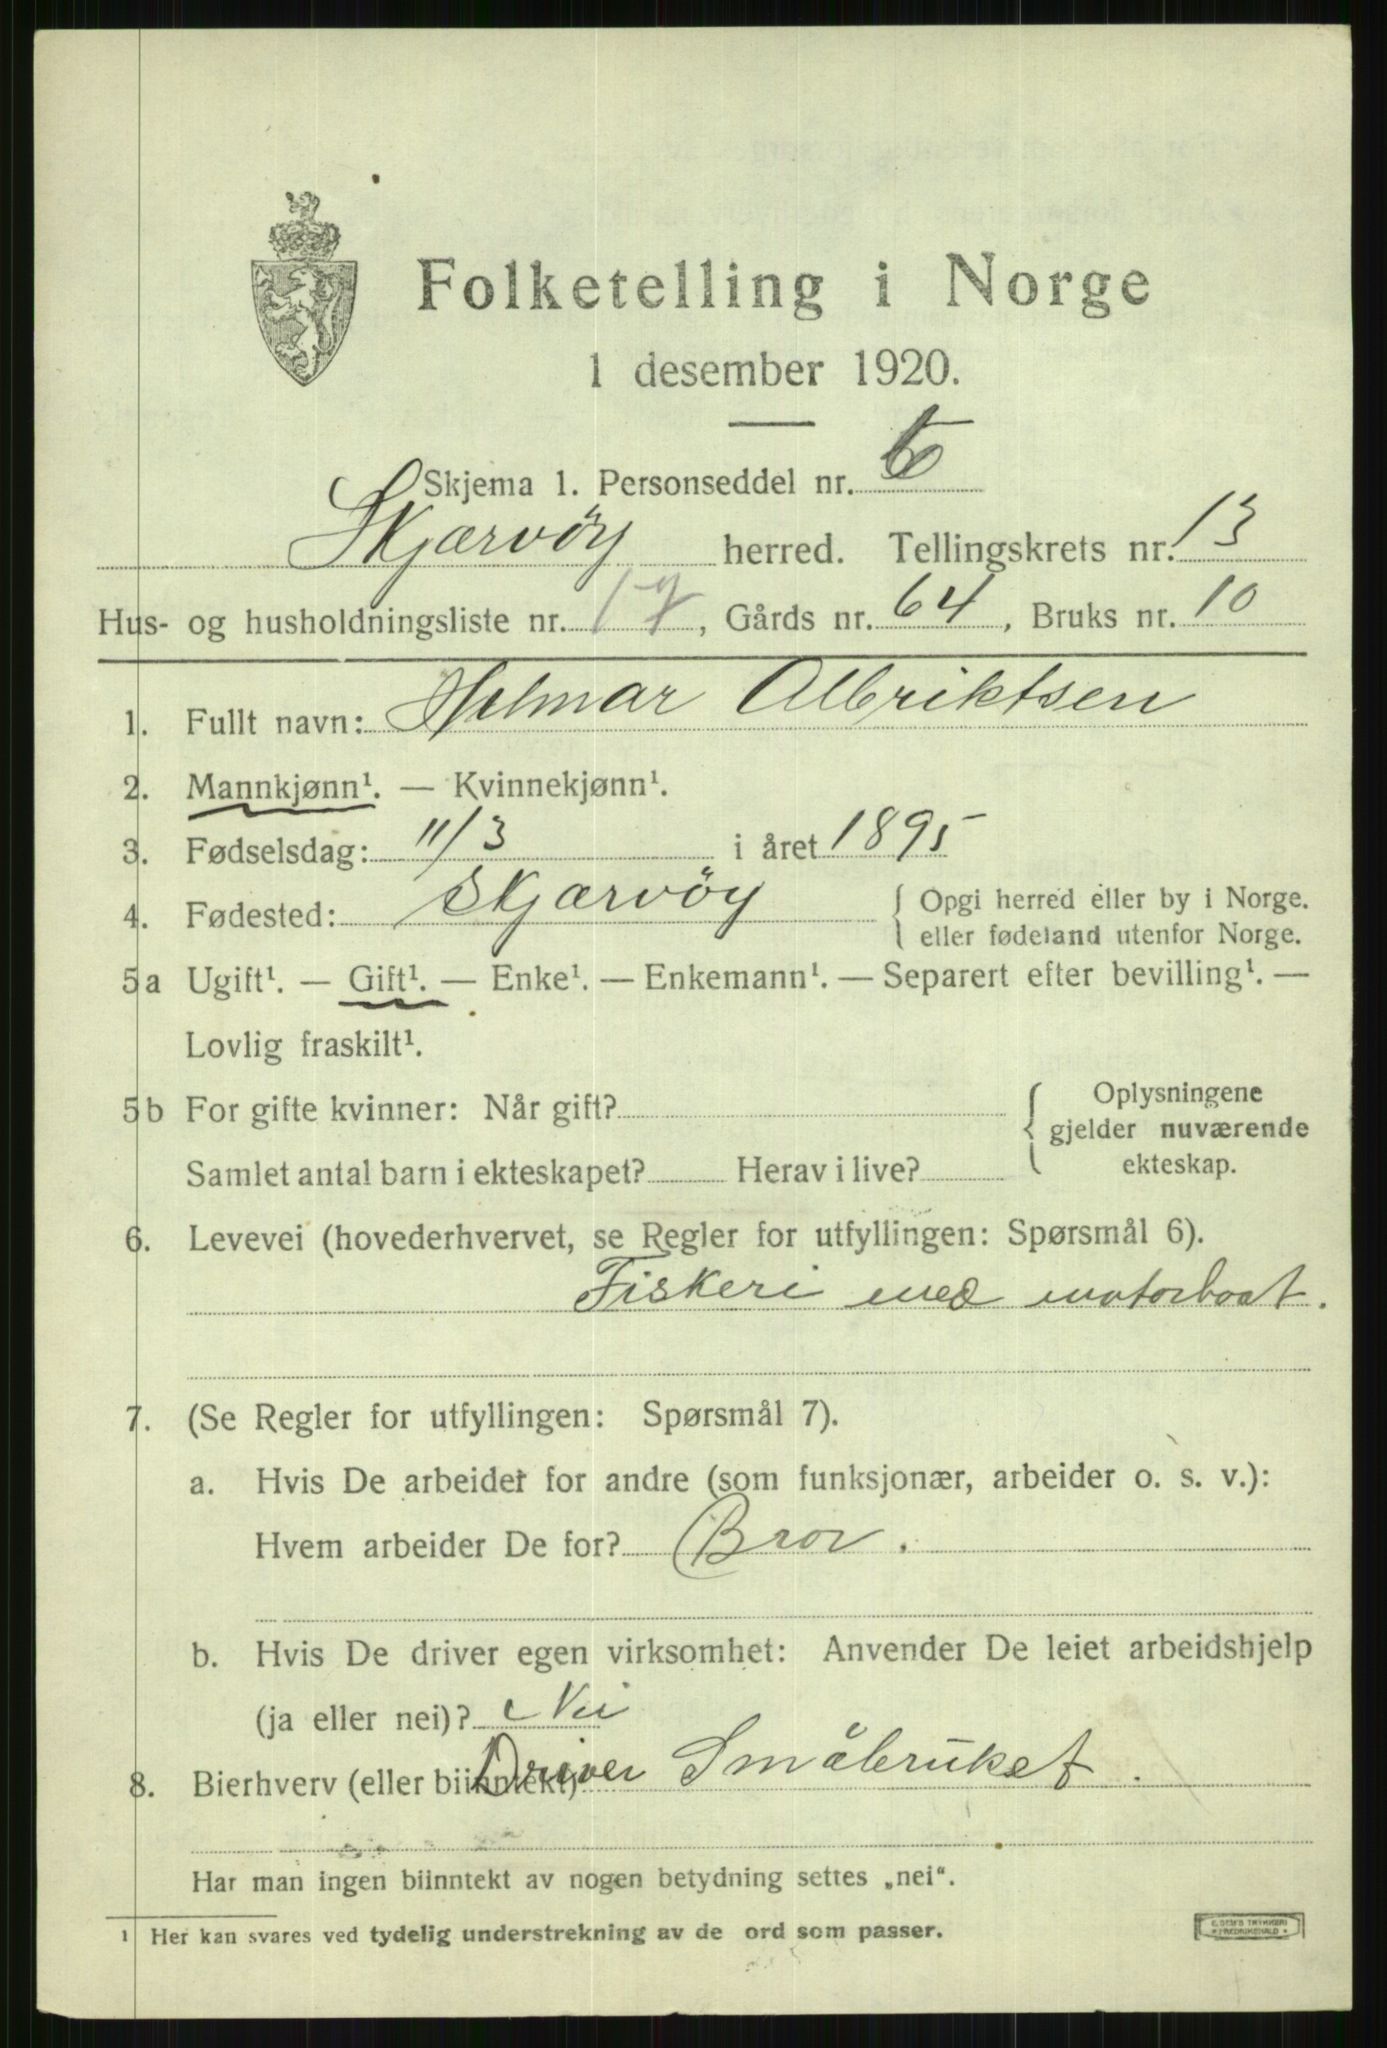 Folketelling i Norge
1 desember 1920.
Skjema 1. Personseddel nr. 6
Skjærvöy herred. Tellingskrets nr. 13
Hus- og husholdningsliste nr. 17, Gårds nr. 64, Bruks nr. 10
1. Fullt navn: Helmar Albriktsen
2. Mannkjønn¹. — Kvinnekjønn¹.
3. Fødselsdag: 11/3 i året 1895
4. Fødested: Skjærvöy { Opgi herred eller by i Norge.
eller fødeland utenfor Norge.
5a Ugift¹. — Gift¹. — Enke¹. — Enkemann¹. — Separert efter bevilling¹. —
Lovlig fraskilt¹.
5b For gifte kvinner: Når gift?
Samlet antal barn i ekteskapet? Herav i live?
{ Oplysningene
gjelder nuværende
ekteskap.
6. Levevei (hovederhvervet, se Regler for utfyllingen: Spørsmål 6).
Fiskeri med motorboat.
7. (Se Regler for utfyllingen: Spørsmål 7).
a. Hvis De arbeider for andre (som funksjonær, arbeider o. s. v.):
Hvem arbeider De for? Bror.
b. Hvis De driver egen virksomhet: Anvender De leiet arbeidshjelp
(ja eller nei)? Nei
8. Bierhverv (eller biinntekt) Driver Småbruket.
Har man ingen biinntekt av nogen betydning settes „nei“.
¹ Her kan svares ved tydelig understrekning av de ord som passer.
E. SEM'S TRYKKERI
FREDRIKSHALD